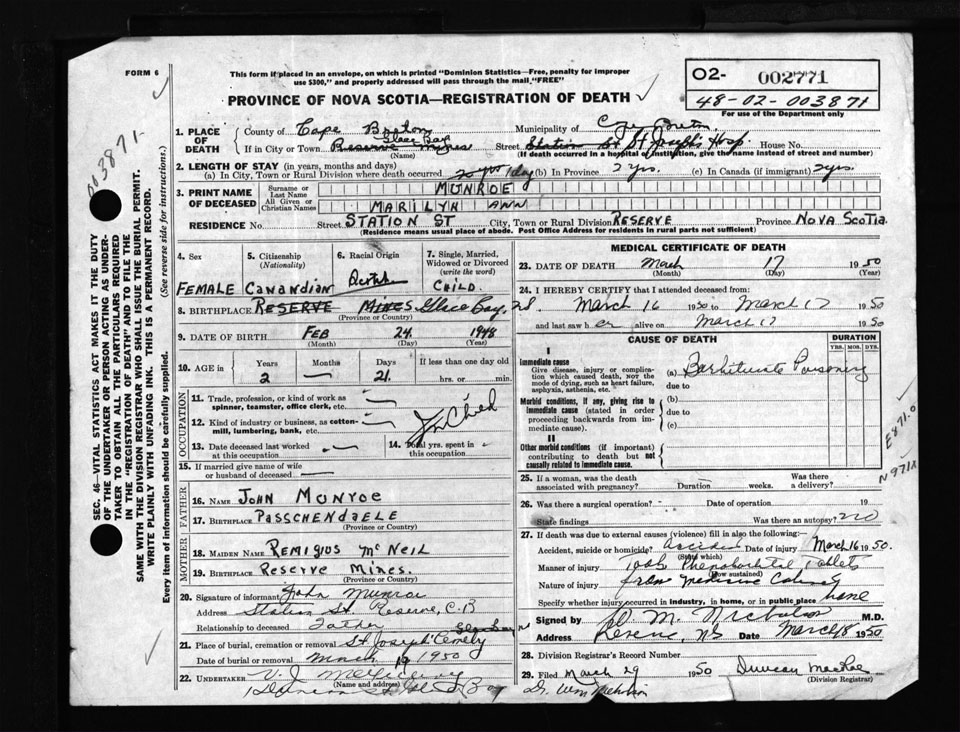 FORM 6
This form if placed in an envelope, on which is printed "Dominion Statistics—Free, penalty for improper
use $300," and properly addressed will pass through the mail "FREE"
PROVINCE OF NOVA SCOTIA—REGISTRATION OF DEATH
02- 002771
48-02-003871
For use of the Department only
003871-
SEC. 46—VITAL STATISTICS ACT MAKES IT THE DUTY
OF THE UNDERTAKER OR PERSON ACTING AS UNDER-
TAKER TO OBTAIN ALL THE PARTICULARS REQUIRED
IN THE "REGISTRATION OF DEATH" AND TO FILE THE
SAME WITH THE DIVISION REGISTRAR WHO SHALL ISSUE THE BURIAL PERMIT.
WRITE PLAINLY WITH UNFADING INK. THIS IS A PERMANENT RECORD.
Every item of information should be carefully supplied. (See reverse side for instructions.)
1. PLACE OF DEATH
County of Cape Breton Municipality of Cape Breton
Glace Bay
If in City or Town Reserve Mines Street Station St St Joseph's Hosp. House No.
(Name) (If death occurred in a hospital or institution, give the name instead of street and number)
2. LENGTH OF STAY (in years, months and days)
(a) In City, Town or Rural Division where death occurred 2 yrs 1 day (b) In Province 2 yrs. (c) In Canada (if immigrant) 2 yrs.
3. PRINT NAME OF DECEASED
Surname or Last Name MUNROE
All Given or Christian Names MARILYN ANN
RESIDENCE No. Street STATION ST City, Town or Rural Division RESERVE Province NOVA SCOTIA
(Residence means usual place of abode. Post Office Address for residents in rural parts not sufficient)
4. Sex FEMALE
5. Citizenship (Nationality) CANANDIAN
6. Racial Origin
7. Single, Married, Widowed or Divorced (write the word) CHILD.
8. BIRTHPLACE RESERVE MINES. Glace Bay, N.S
(Province or Country)
9. DATE OF BIRTH FEB 24. 1948
(Month) (Day) (Year)
10. AGE in Years 2 Months — Days 21. If less than one day old hrs. or min.
OCCUPATION
11. Trade, profession, or kind of work as spinner, teamster, office clerk, etc.
12. Kind of industry or business, as cotton-mill, lumbering, bank, etc.
Child
13. Date deceased last worked at this occupation
14. Total yrs. spent in this occupation
15. If married give name of wife or husband of deceased
FATHER
16. NAME JOHN MUNROE
17. BIRTHPLACE PASSCHENDAELE
(Province or Country)
MOTHER
18. MAIDEN NAME REMIGIUS McNEIL
19. BIRTHPLACE RESERVE MINES.
(Province or Country)
20. Signature of informant John Munroe
Address Station St. Reserve, C.B
Relationship to deceased Father
Glace Bay
21. Place of burial, cremation or removal St Joseph Cemetery
Date of burial or removal March 19 1950
22. UNDERTAKER V. J.
(Name and address)
MEDICAL CERTIFICATE OF DEATH
23. DATE OF DEATH March 17 1950
(Month) (Day) (Year)
24. I HEREBY CERTIFY that I attended deceased from:
March 16 1950 to March 17 1950
and last saw her alive on March 17 1950
CAUSE OF DEATH DURATION
YRS. MOS. DYS.
I
Immediate cause
Give disease, injury or complication which caused death, not the mode of dying, such as heart failure, asphyxia, asthenia, etc.
(a) Barbiturate Poisoning
due to
Morbid conditions, if any, giving rise to immediate cause (stated in order proceeding backwards from immediate cause).
(b)
due to
(c)
II
Other morbid conditions (if important) contributing to death but not causally related to immediate cause.
E871.0
N971X
25. If a woman, was the death associated with pregnancy? Duration weeks. Was there a delivery?
26. Was there a surgical operation? Date of operation 19
State findings Was there an autopsy? no
27. If death was due to external causes (violence) fill in also the following:
Accident, suicide or homicide? Accident Date of injury March 16 1950.
(State which)
Manner of injury Took Phenobarbital Tablets
(How sustained)
Nature of injury from Medicine Cabinet
Specify whether injury occurred in industry, in home, or in public place home
Signed by M.D.
Address Reserve, NS Date March 18 1950
28. Division Registrar's Record Number
29. Filed March 29 1950 Duncan MacRae
(Division Registrar)